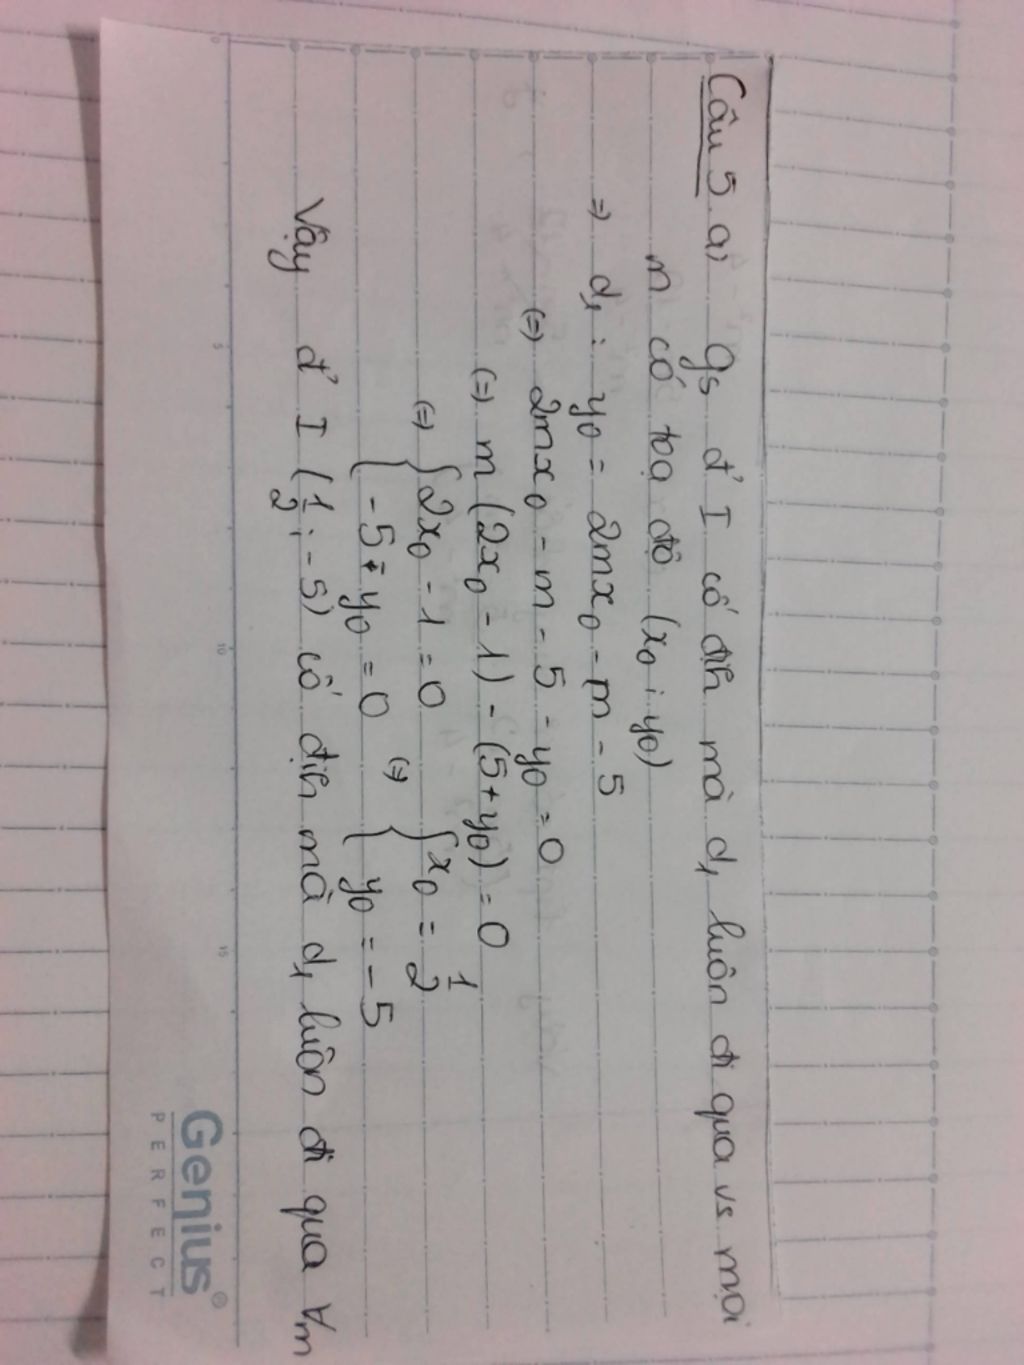 Câu 5. a) gs đ' I cố định mà d₁ luôn đi qua vs mọi
m có toạ độ (x₀ ; y₀)
⇒ d₁ : y₀ = 2mx₀ - m - 5
(=) 2mx₀ - m - 5 - y₀ = 0
(=) m (2x₀ - 1) - (5 + y₀) = 0
(=) { 2x₀ - 1 = 0 (=) { x₀ = 1/2
{ -5 - y₀ = 0 { y₀ = -5
Vậy đ' I (1/2 ; -5) cố định mà d₁ luôn đi qua ∀m
0 5 10 15
Genius®
PERFECT